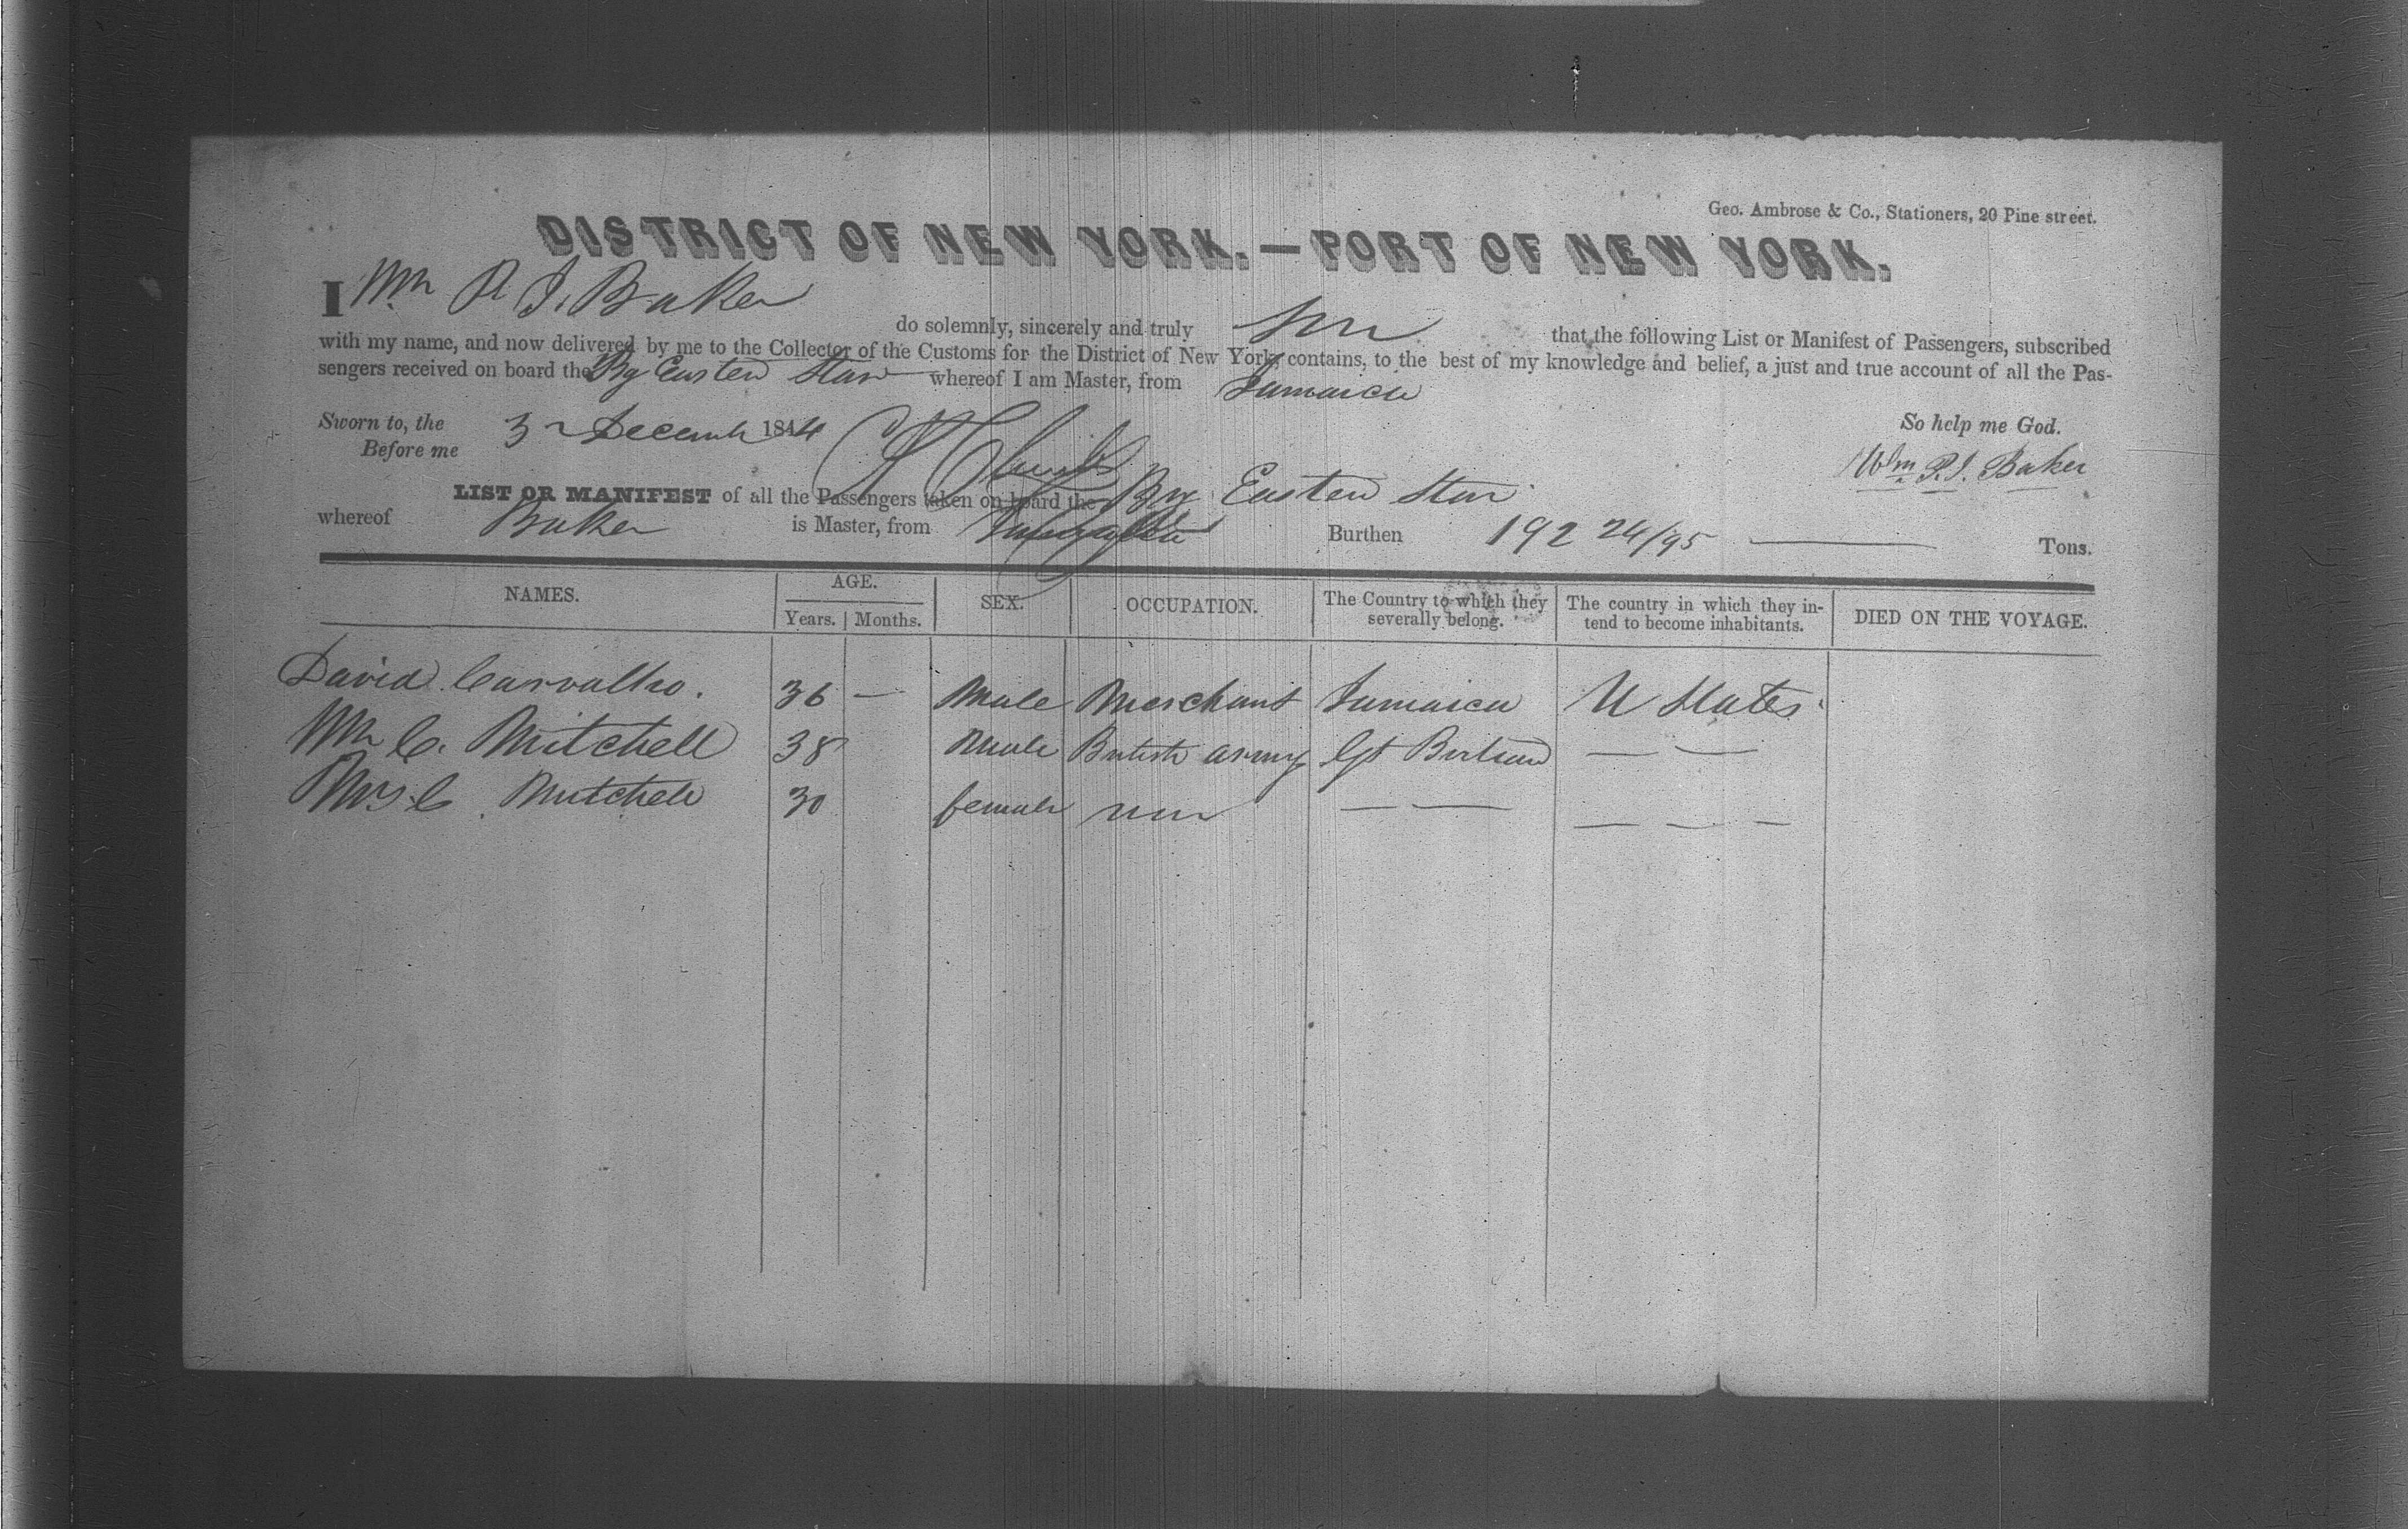 Geo. Ambrose & Co., Stationers, 20 Pine street.
DISTRICT OF NEW YORK.—PORT OF NEW YORK.
I Wm P. J. Baker do solemnly, sincerely and truly that the following List or Manifest of Passengers, subscribed
with my name, and now delivered by me to the Collector of the Customs for the District of New York, contains, to the best of my knowledge and belief, a just and true account of all the Pas-
sengers received on board the Bg Eastern Star whereof I am Master, from Jamaica
Sworn to, the 3 December 1844 So help me God.
Before me Wm. P. J. Baker
LIST OR MANIFEST of all the Passengers taken on board the Brig Eastern Star
whereof Baker is Master, from Burthen 192 24/95 Tons.
NAMES. AGE. SEX. OCCUPATION. The Country to which they severally belong. The country in which they in-tend to become inhabitants. DIED ON THE VOYAGE.
Years. Months.
David Carvalho. 36 — Male Merchant Jamaica U States
Mr C. Mitchell 38 Male British army Gt Britain — —
Mrs C. Mitchell 30 female — — — — —